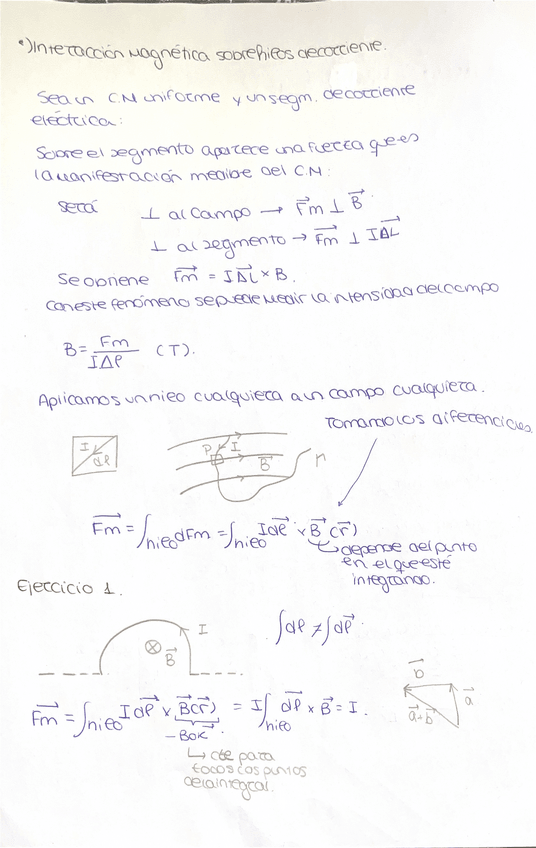 •) Interacción Magnética sobre hilos de corriente.
Sea un C.M uniforme y un segm. de corriente
eléctrica:
Sobre el segmento aparece una fuerza que es
la manifestación medible del C.M:
Será ⊥ al campo → F⃗m ⊥ B⃗
⊥ al segmento → F⃗m ⊥ IΔL⃗
Se obtiene F⃗m = IΔL⃗ × B.
Con este fenómeno se puede medir la intensidad del campo
B = Fm / IΔℓ (T).
Aplicamos un hilo cualquiera a un campo cualquiera.
Tomando los diferenciales
I dℓ
P I B⃗ Γ
F⃗m = ∫hilo dFm = ∫hilo Idℓ⃗ × B⃗(r⃗)
↳ depende del punto
en el que esté
integrando.
Ejercicio 1.
I ⊗ B⃗
∫dℓ ≠ ∫dℓ⃗
b⃗ a⃗ a⃗+b⃗
F⃗m = ∫hilo Idℓ⃗ × B⃗(r⃗) = I∫hilo dℓ⃗ × B⃗ = I.
-B0K⃗
↳ cte para
todos los puntos
de la integral.